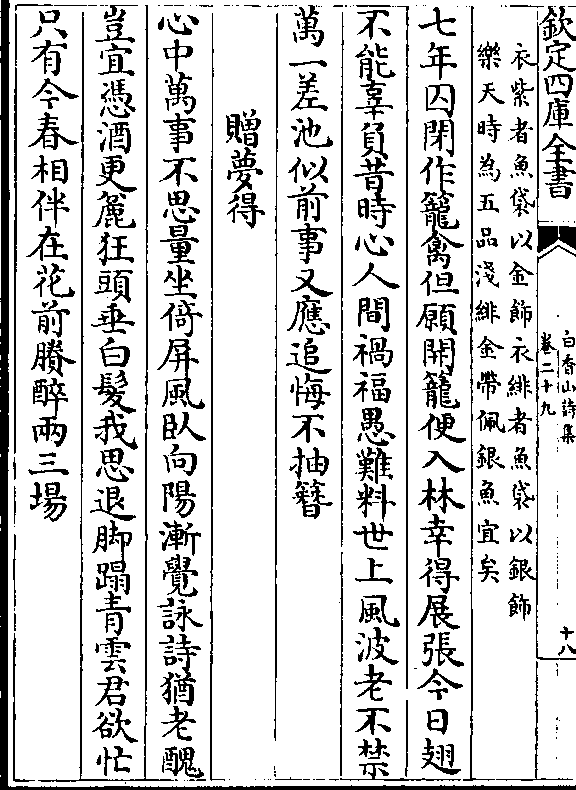 欽定四庫全書
白香山詩集
卷二十九
十八
衣紫者魚袋以金飾衣緋者魚袋以銀飾
樂天時為五品淺緋金帶佩銀魚宜矣
七年囚閉作籠禽但願開籠便入林幸得展張今日翅
不能辜負昔時心人間禍福愚難料世上風波老不禁
萬一差池似前事又應追悔不抽簪
贈夢得
心中萬事不思量坐倚屏風臥向陽漸覺詠詩猶老醜
豈宜憑酒更麄狂頭垂白髮我思退脚蹋青雲君欲忙
只有今春相伴在花前賸醉兩三場